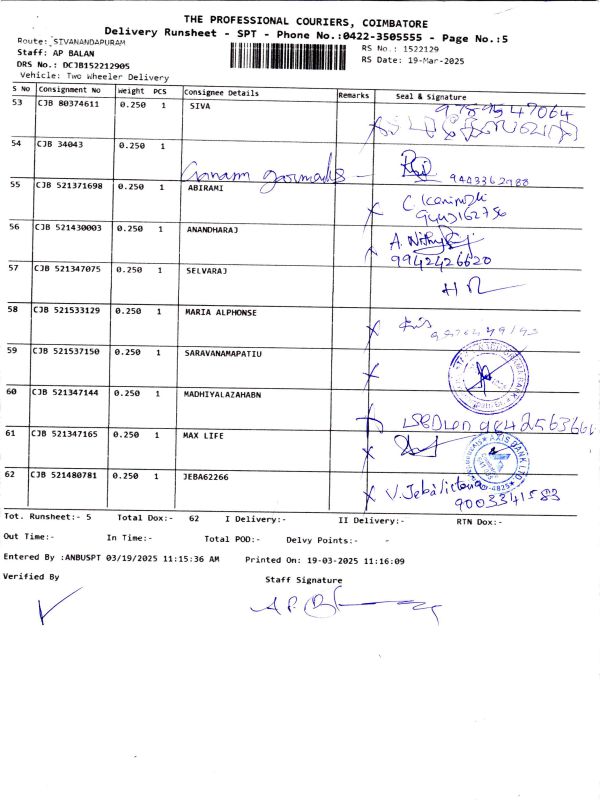 THE PROFESSIONAL COURIERS, COIMBATORE
Delivery Runsheet - SPT - Phone No.:0422-3505555 - Page No.:5
Route: SIVANANDAPURAM
RS No.: 1522129
Staff: AP BALAN
RS Date: 19-Mar-2025
DRS No.: DCJB152212905
Vehicle: Two Wheeler Delivery
S No Consignment No Weight PCS Consignee Details Remarks Seal & Signature
53 CJB 80374611 0.250 1 SIVA 9789547064
54 CJB 34043 0.250 1
9443362988
55 CJB 521371698 0.250 1 ABIRAMI
9443162756
56 CJB 521430003 0.250 1 ANANDHARAJ A.
9942426620
57 CJB 521347075 0.250 1 SELVARAJ
58 CJB 521533129 0.250 1 MARIA ALPHONSE
59 CJB 521537150 0.250 1 SARAVANAMAPATIU
60 CJB 521347144 0.250 1 MADHIYALAZAHABN
61 CJB 521347165 0.250 1 MAX LIFE AXIS BANK LTD
62 CJB 521480781 0.250 1 JEBA62266 V.
9003341583
Tot. Runsheet:- 5 Total Dox:- 62 I Delivery:- II Delivery:- RTN Dox:-
Out Time:- In Time:- Total POD:- Delvy Points:- -
Entered By :ANBUSPT 03/19/2025 11:15:36 AM Printed On: 19-03-2025 11:16:09
Verified By Staff Signature